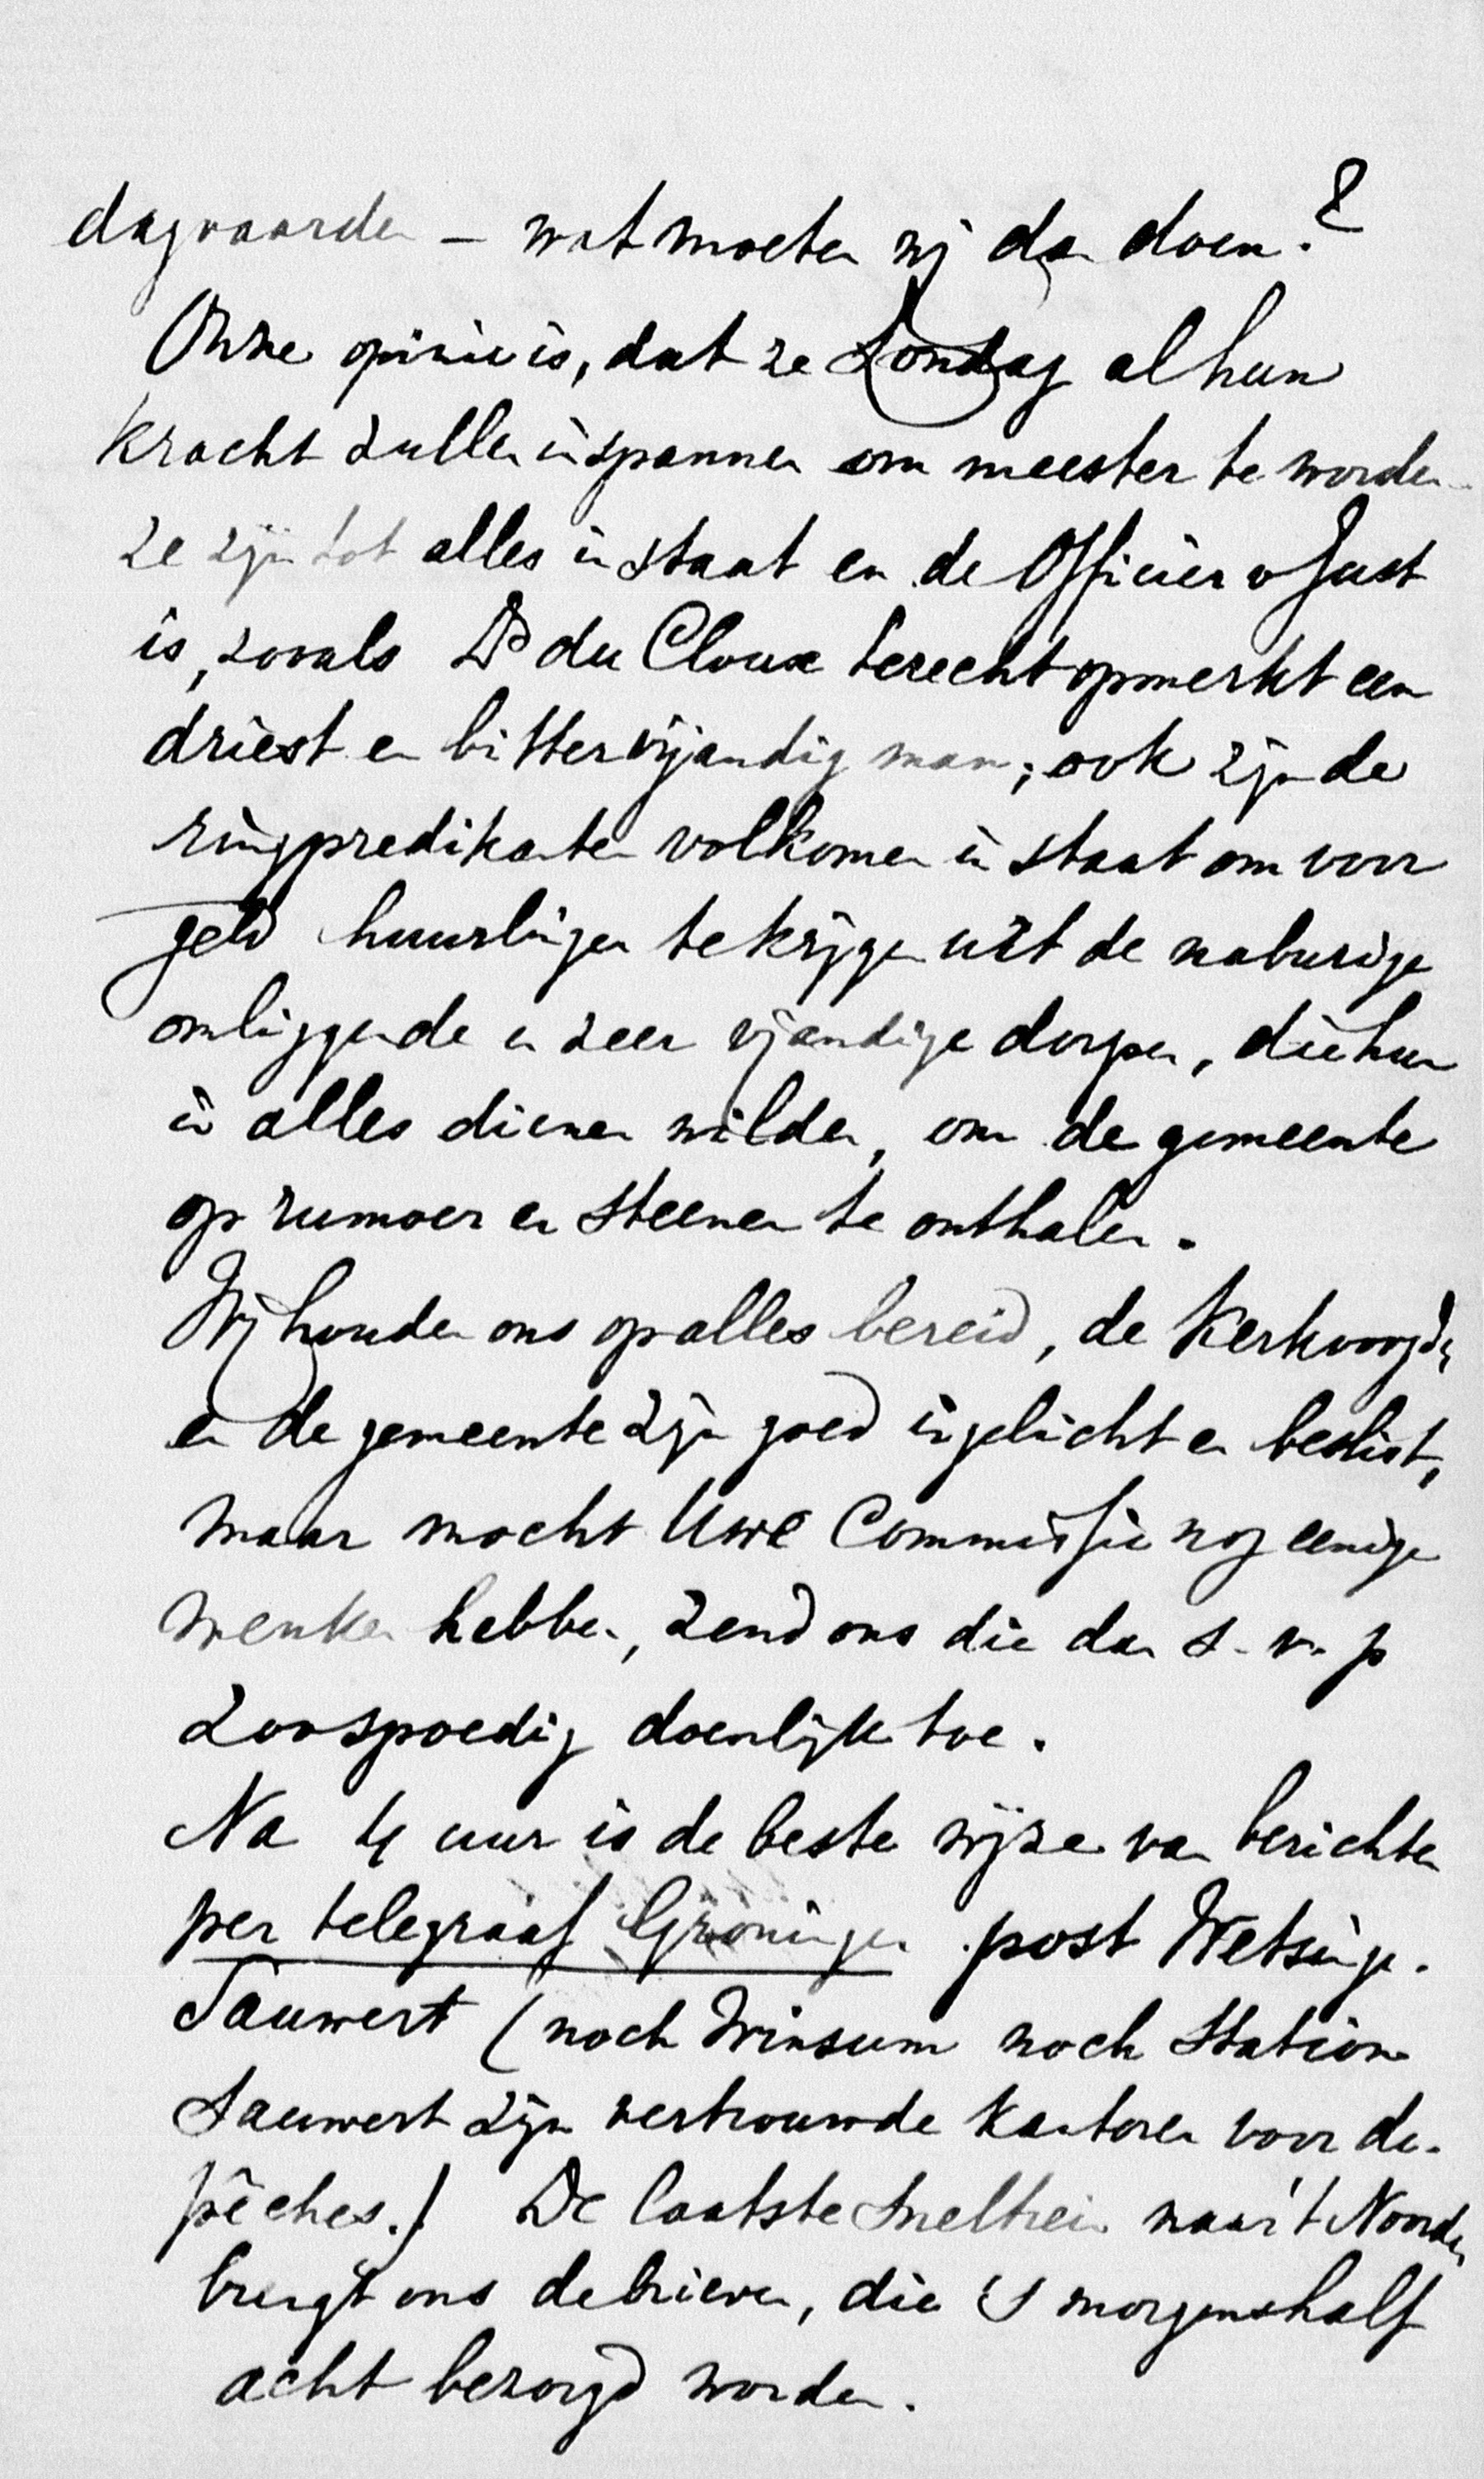 dagvaarden – wat moeten wij dan doen?
Onze opinie is, dat ze Zondag al hun
kracht zullen inspannen om meester te worden
ze zijn tot alles in staat en de Officier v Just
is, zooals Ds du Cloux terecht opmerkt een
driest en bitter vijandig man; ook zijn de
ringpredikanten volkomen in staat om voor
geld huurlingen te krijgen uit de naburige
omliggende en zeer vijandige dorpen, die hun
in alles dienen wilden, om de gemeente
op rumoer en steenen te onthalen.
Wij houden ons op alles bereid, de Kerkvoogdn
en de gemeente zijn goed ingelicht en beslist,
maar mocht Uwe Commissie nog eenige
wenken hebben, zend ons die dan s.v.p
zoo spoedig doenlijk toe.
Na 4 uur is de beste wijze van berichten
per telegraaf Groningen post Wetsinge.
Sauwert (noch Winsum noch Station
Sauwert zijn vertrouwde kantoren voor de-
pêches.) De laatste Sneltrein naar 't Noorden
brengt ons de brieven, die 's morgens half
acht bezorgd worden.